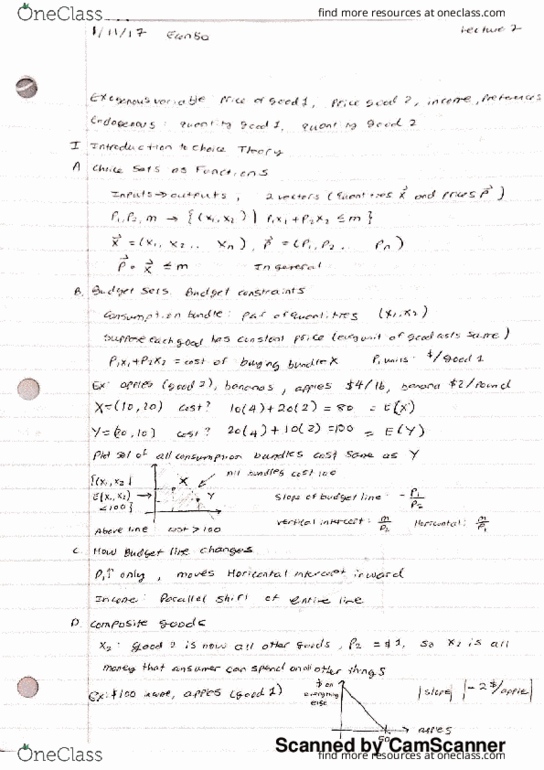 OneClass
find more resources at oneclass.com
find more resources at oneclass.com
1/11/17 Econ 50 Lecture 2
Exogenous variable: price of good 1, price good 2, income, preferences
Endogenous: quantity good 1, quantity good 2
I Introduction to Choice Theory
A Choice Sets as Functions
Inputs → outputs, 2 vectors (quantities x⃗ and prices p⃗)
P₁, P₂, m → {(x₁, x₂) | P₁x₁ + P₂x₂ ≤ m}
x⃗ = (x₁, x₂ .. xₙ), p⃗ = (P₁, P₂ .. Pₙ)
p⃗ · x⃗ ≤ m In general
B. Budget sets. Budget constraints
Consumption bundle: pair of quantities (x₁, x₂)
Suppose each good has constant price (every unit of good costs same)
P₁x₁ + P₂x₂ = cost of buying bundle X P₁ units: $/good 1
Ex: apples (good 2), bananas, apples $4/lb, banana $2/pound
X = (10, 20) cost? 10(4) + 20(2) = 80 = E(X)
Y = (20, 10) cost? 20(4) + 10(2) = 100 = E(Y)
Plot set of all consumption bundles cost same as Y
{(x₁, x₂) | E(x₁, x₂) ≤ 100}
X
Y
All bundles cost 100
Slope of budget line: -P₁/P₂
Vertical intercept: m/P₂ Horizontal: m/P₁
Above line cost > 100
C. How Budget line changes
P₁↑ only, moves Horizontal intercept inward
Income: Parallel shift of entire line
D. Composite goods
x₂: good 2 is now all other goods, P₂ = $1, so x₂ is all
money that consumer can spend on all other things
Ex: $100 apples (good 1)
$ on everything else
50
apples
|slope| = 2 $/apple
Scanned by CamScanner
OneClass
find more resources at oneclass.com